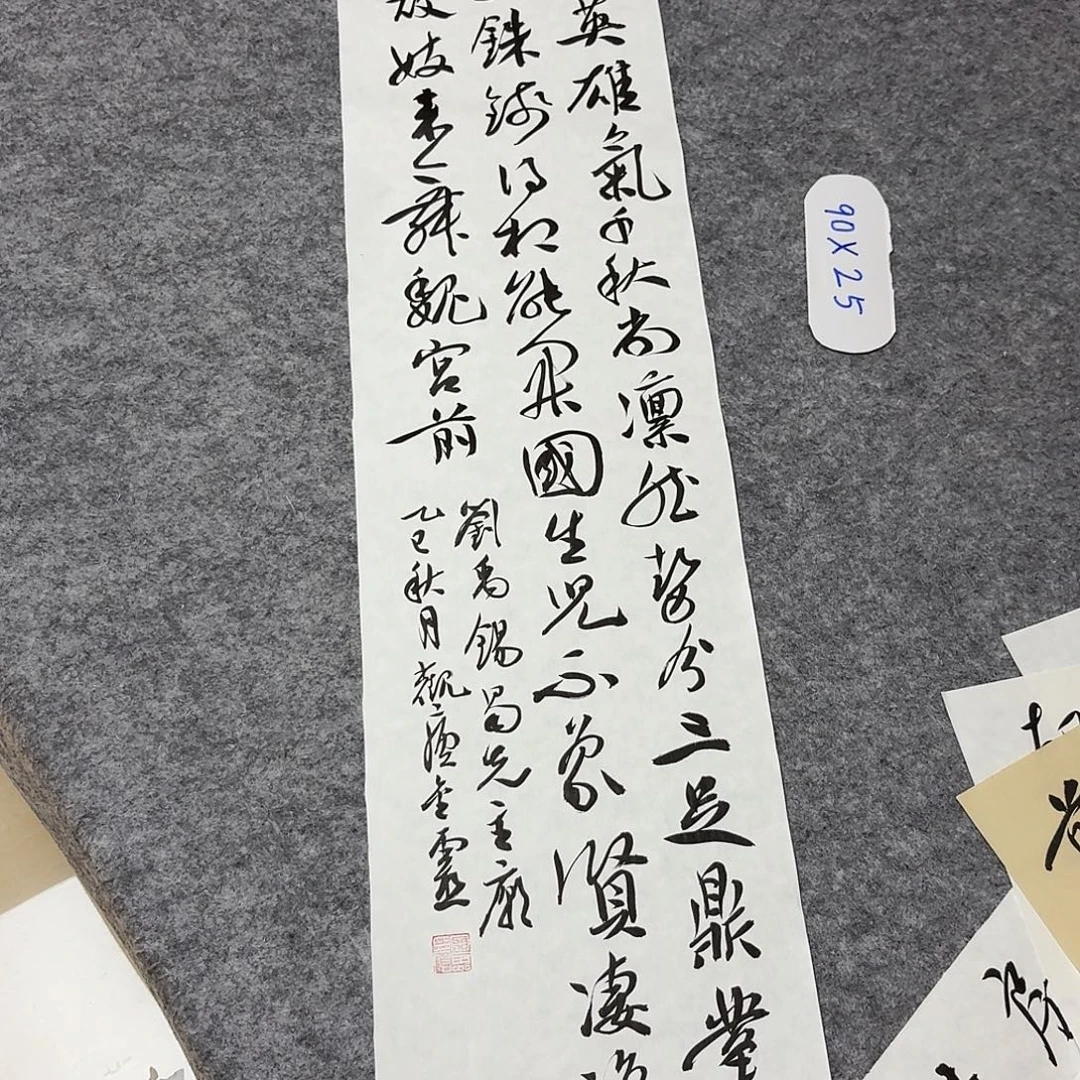 英雄氣千秋尚凜然勢分三足鼎業
銖錢得相能開國生児不象賢淒涼
故妓来舞魏宫前
劉禹錫蜀先主廟
乙巳秋月觀
90X25